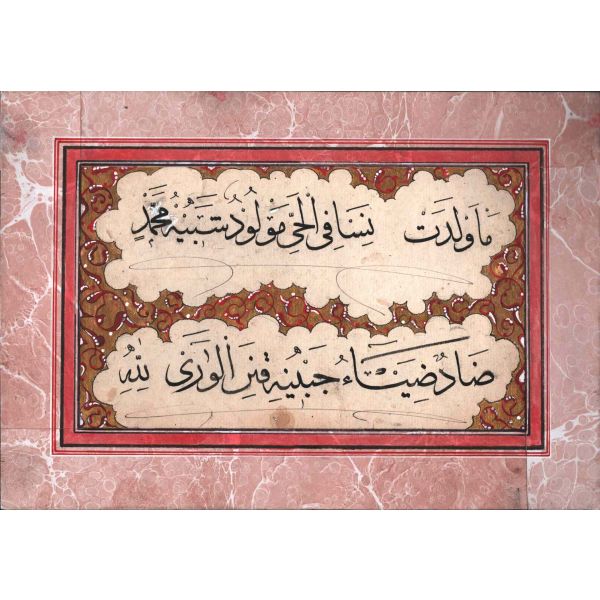 مَا وَلَدَتْ نِسَا فِي الْحَيِّ مَوْلُودُ شَبِيهُ مُحَمَّدٍ
ضَادُ ضِيَاءُ جَبِينِهِ الْوَرَى لِلّٰهِ